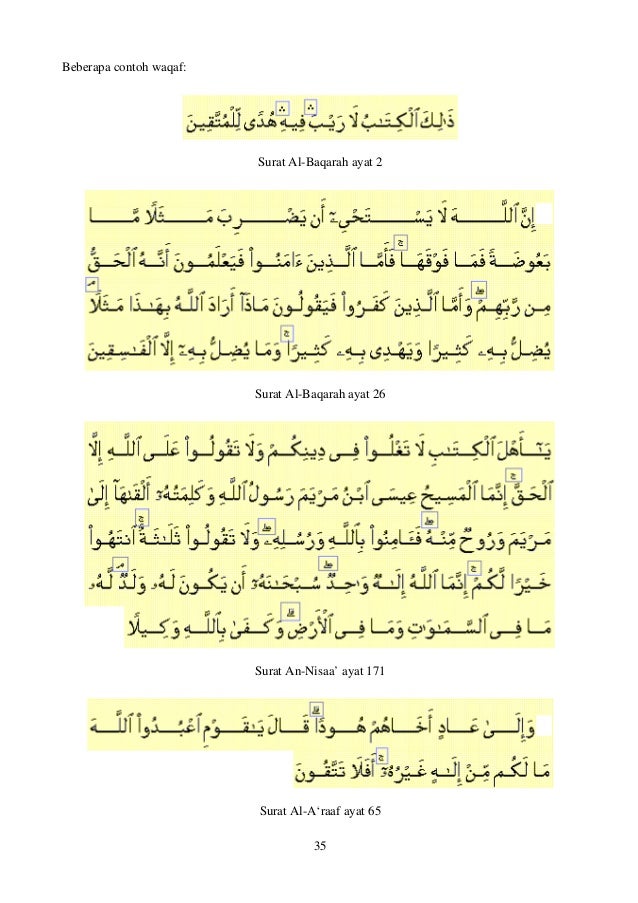 Beberapa contoh waqaf:
ذَٰلِكَ ٱلْكِتَـٰبُ لَا رَيْبَ ۛ فِيهِ ۛ هُدًى لِّلْمُتَّقِينَ
Surat Al-Baqarah ayat 2
إِنَّ ٱللَّهَ لَا يَسْتَحْىِۦٓ أَن يَضْرِبَ مَثَلًا مَّا
بَعُوضَةً فَمَا فَوْقَهَا ۚ فَأَمَّا ٱلَّذِينَ ءَامَنُوا۟ فَيَعْلَمُونَ أَنَّهُ ٱلْحَقُّ
مِن رَّبِّهِمْ ۖ وَأَمَّا ٱلَّذِينَ كَفَرُوا۟ فَيَقُولُونَ مَاذَآ أَرَادَ ٱللَّهُ بِهَـٰذَا مَثَلًا ۘ
يُضِلُّ بِهِۦ كَثِيرًا وَيَهْدِى بِهِۦ كَثِيرًا ۚ وَمَا يُضِلُّ بِهِۦٓ إِلَّا ٱلْفَـٰسِقِينَ
Surat Al-Baqarah ayat 26
يَـٰٓأَهْلَ ٱلْكِتَـٰبِ لَا تَغْلُوا۟ فِى دِينِكُمْ وَلَا تَقُولُوا۟ عَلَى ٱللَّهِ إِلَّا
ٱلْحَقَّ ۚ إِنَّمَا ٱلْمَسِيحُ عِيسَى ٱبْنُ مَرْيَمَ رَسُولُ ٱللَّهِ وَكَلِمَتُهُۥٓ أَلْقَىٰهَآ إِلَىٰ
مَرْيَمَ وَرُوحٌ مِّنْهُ ۖ فَـَٔامِنُوا۟ بِٱللَّهِ وَرُسُلِهِۦ ۖ وَلَا تَقُولُوا۟ ثَلَـٰثَةٌ ۚ ٱنتَهُوا۟
خَيْرًا لَّكُمْ ۚ إِنَّمَا ٱللَّهُ إِلَـٰهٌ وَٰحِدٌ ۖ سُبْحَـٰنَهُۥٓ أَن يَكُونَ لَهُۥ وَلَدٌ ۘ لَّهُۥ
مَا فِى ٱلسَّمَـٰوَٰتِ وَمَا فِى ٱلْأَرْضِ ۗ وَكَفَىٰ بِٱللَّهِ وَكِيلًا
Surat An-Nisaa’ ayat 171
وَإِلَىٰ عَادٍ أَخَاهُمْ هُودًا ۗ قَالَ يَـٰقَوْمِ ٱعْبُدُوا۟ ٱللَّهَ
مَا لَكُم مِّنْ إِلَـٰهٍ غَيْرُهُۥٓ ۚ أَفَلَا تَتَّقُونَ
Surat Al-A‘raaf ayat 65
35